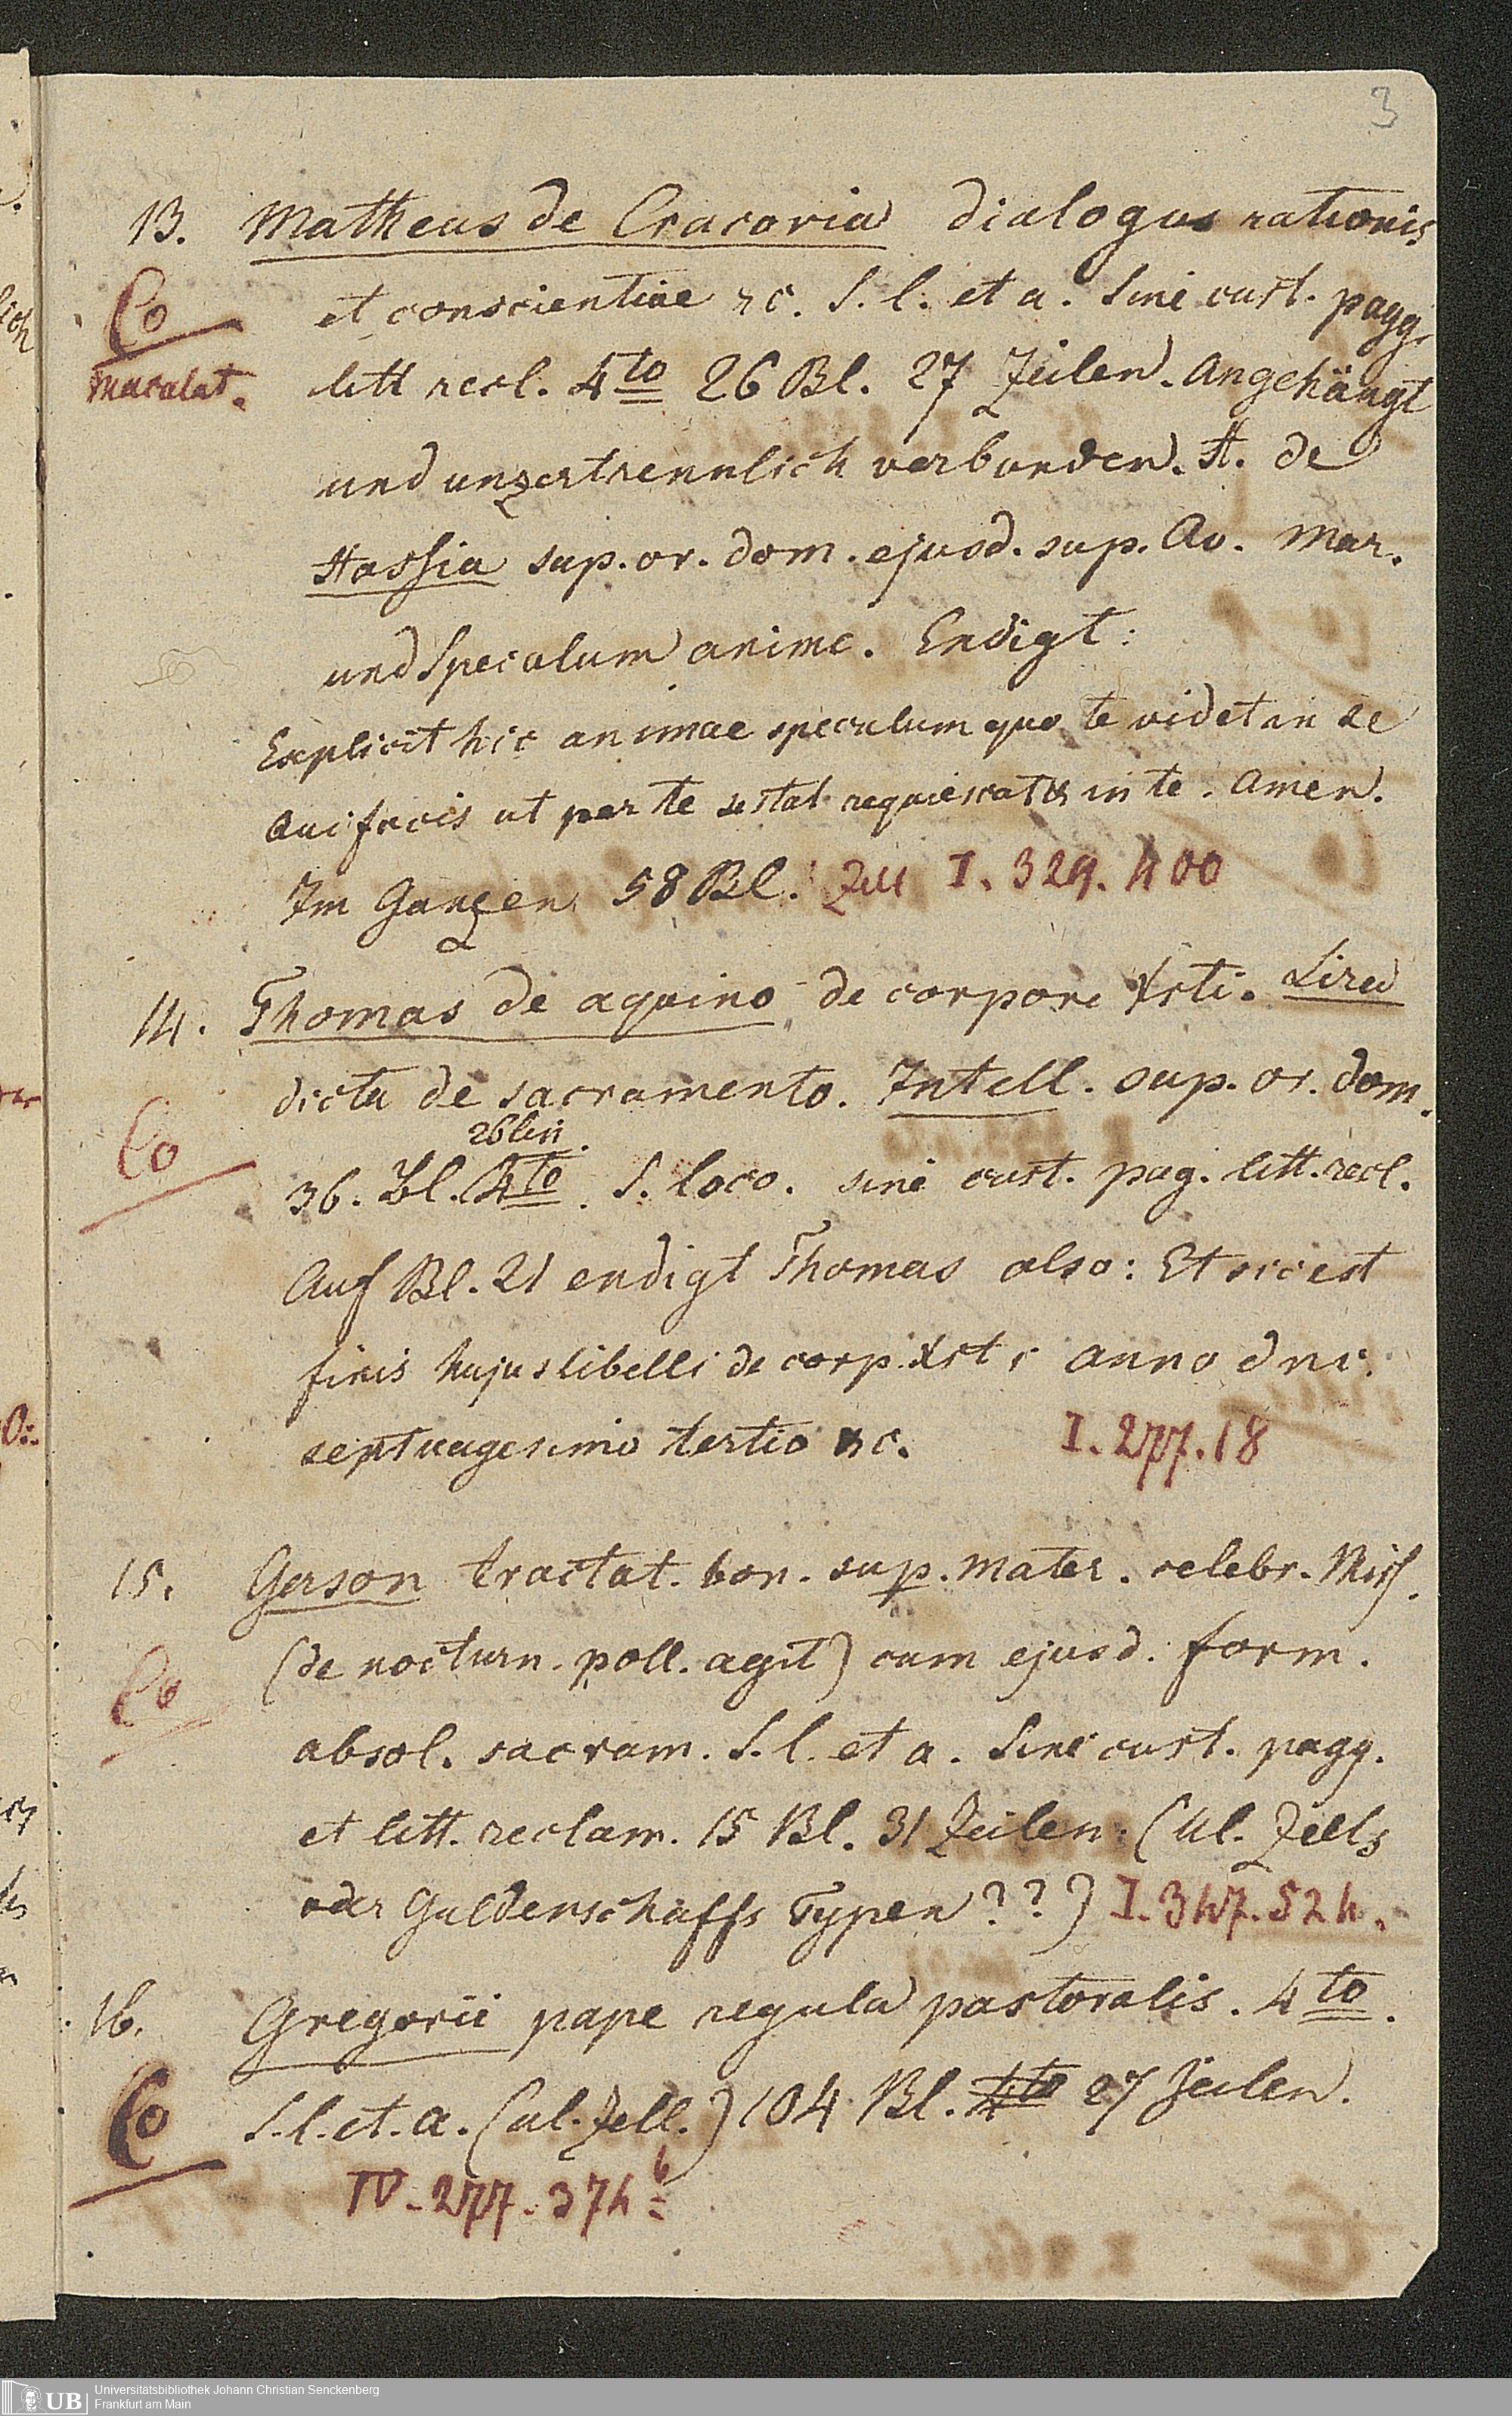 3
13. Matheus de Cracovia dialogus rationis
et conscientiae rc. S. l. et a. Sine cust. pagg.
Co
litt recl. 4to 26 Bl. 27 Zeilen. Angehängt
maculat.
und unzertrennlich verbunden. H. de
Hassia sup. or. dom. ejusd. sup. Av. Mar.
und Speculum anime. Endigt:
Explicit hic animae speculum quo te videt in se
Qui facis ut per te stat requiescat in te. Amen.
Im Ganzen 58 Bl. Zu I. 329. 400
14. Thomas de aquino de corpore Xsti. Lira
dicta de sacramento. Intell. sup. or. dom.
Co
26 lin.
36. Bl. 4to. S. loco. sine cust. pag. litt. recl.
Auf Bl. 21 endigt Thomas also: Et sic est
finis hujus libelli de corp. Xsti anno dni.
septuagesimo tertio rc. I. 277. 18
15. Gerson tractat. bon. sup. mater. celebr. Miss.
(de nocturn. poll. agit) cum ejusd. form.
Co
absol. sacram. S. l. et a. Sine cust. pagg.
et litt. reclam. 15 Bl. 31 Zeilen. (Ul. Zells
oder Guldenschaffs Typen??) I. 347. 524.
16. Gregorii pape regula pastoralis. 4to.
Co
S. l. et. a. (Ul. Zell.) 104 Bl. 4to 27 Zeilen.
IV. 277. 374 b
UB Universitätsbibliothek Johann Christian Senckenberg
Frankfurt am Main